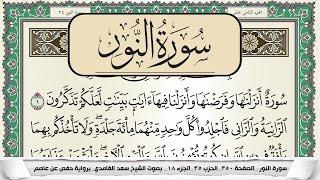 سُورَةُ النُّورِ
سُورَةٌ أَنزَلْنَٰهَا وَفَرَضْنَٰهَا وَأَنزَلْنَا فِيهَآ ءَايَٰتٍۭ بَيِّنَٰتٍ لَّعَلَّكُمْ تَذَكَّرُونَ ١
ٱلزَّانِيَةُ وَٱلزَّانِي فَٱجْلِدُوا۟ كُلَّ وَٰحِدٍ مِّنْهُمَا مِا۟ئَةَ جَلْدَةٍ وَلَا تَأْخُذْكُم بِهِمَا
سورة النور الصفحة ٣٥٠ الحزب ٣٥ الجزء ١٨ . بصوت الشيخ سعد الغامدي. برواية حفص عن عاصم